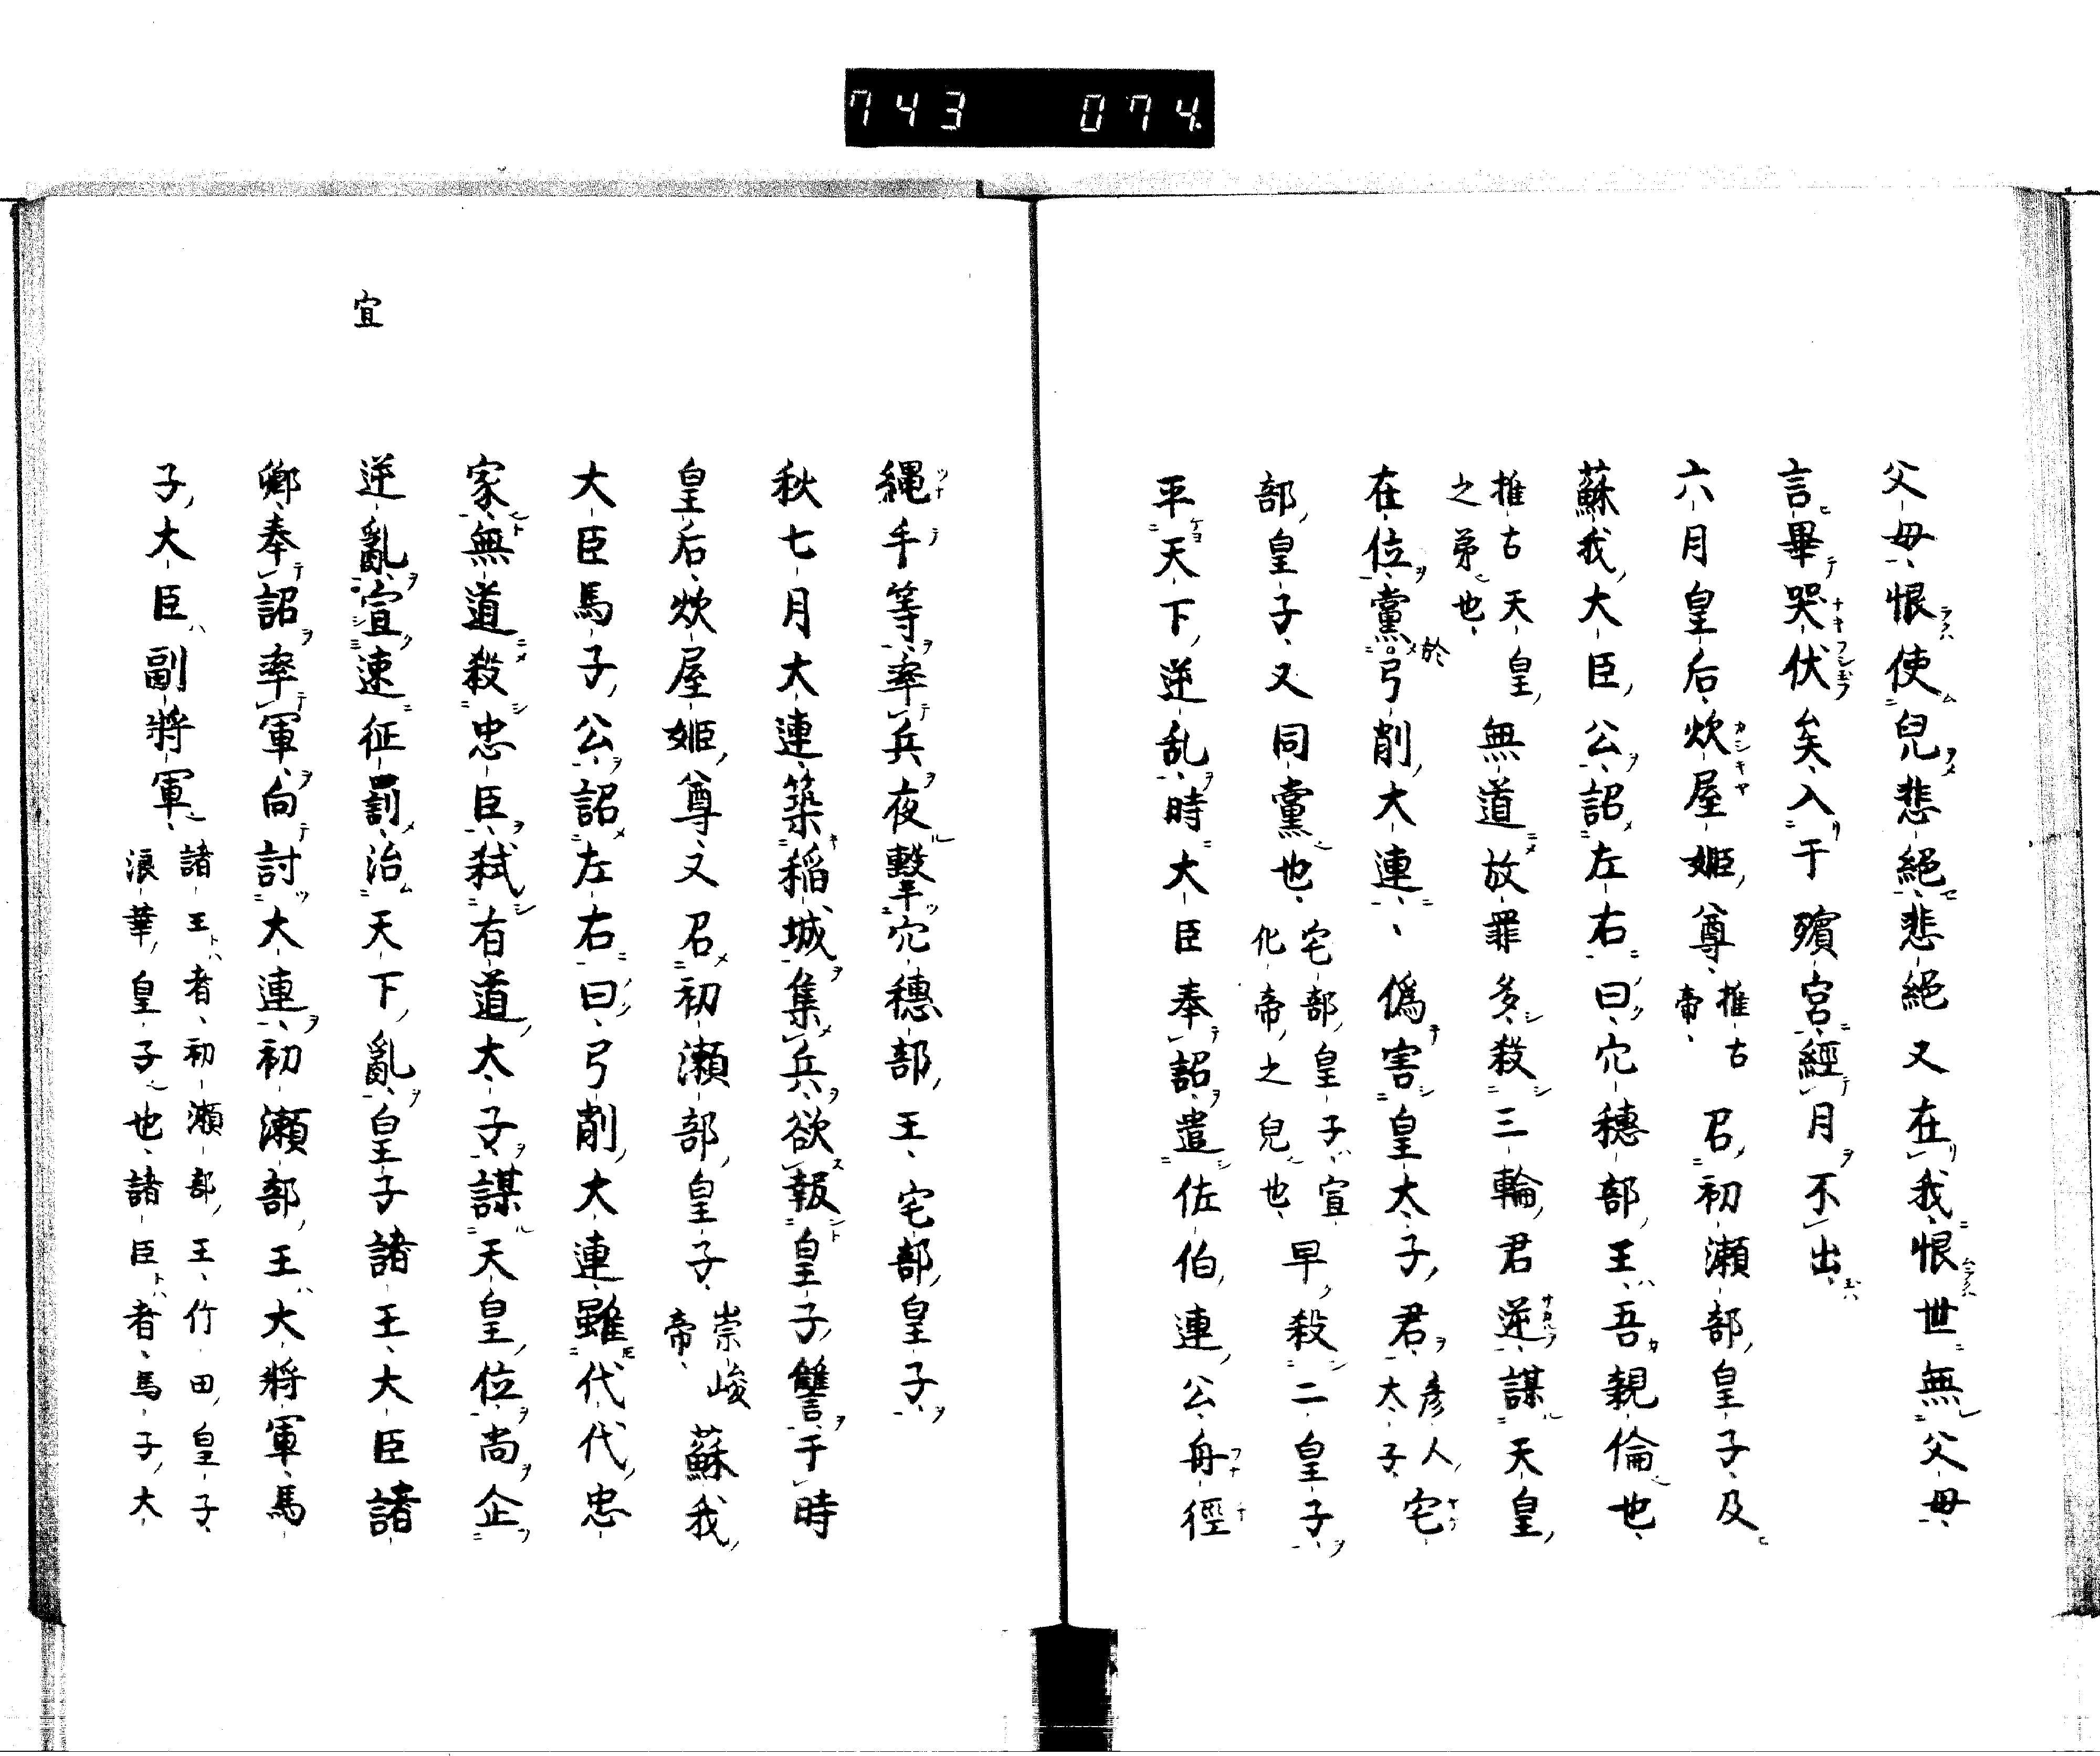 743 074
父母恨使兒悲絕悲絕又在我恨世無父母
言畢哭伏矣入于殯宮經月不出
六月皇后炊屋姬尊推古帝召初瀬部皇子及
蘇我大臣公詔左右曰穴穗部王吾親倫也
推古天皇之弟也無道放罪多殺三輪君逆謀天皇
在位黨於弓削大連、偽害皇太子君彦人太子宅
部皇子又同黨也宅部皇子宣化帝之兒也早殺二皇子
平天下逆乱時大臣奉詔遣佐伯連公舟徑
縄手等率兵夜擊穴穗部王宅部皇子
秋七月大連築稲城集兵欲報皇子讐于時
皇后炊屋姬尊又召初瀬部皇子崇峻帝蘇我
大臣馬子公詔左右曰弓削大連雖代代忠
家無道殺忠臣弑有道太子謀天皇位尚企
逆亂宣速征罰治天下亂皇子諸王大臣諸
宜
卿奉詔率軍向討大連初瀬部王大将軍馬
子大臣副将軍諸王者初瀬部王竹田皇子浪華皇子也諸臣者馬子大